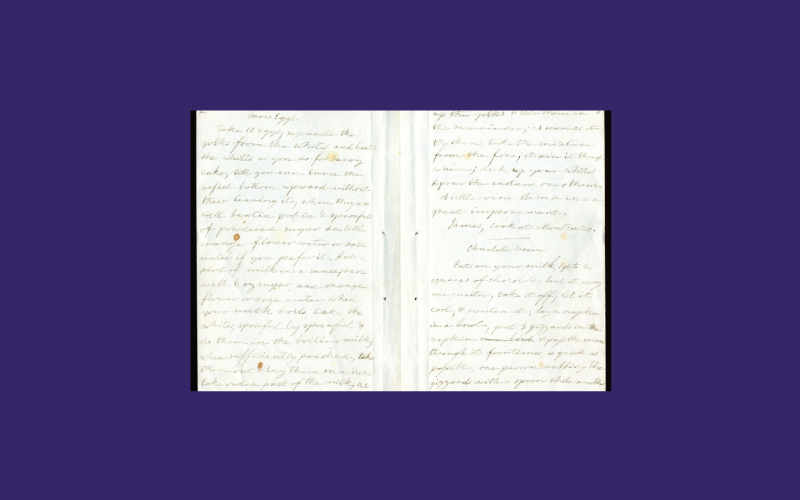 Snow Eggs.
Take 10 eggs, separate the
yolks from the whites and beat
the whites as you do for savoy
cake, till you can turn the
vessel bottom upward without
their leaving it; when they are
well beaten put in 2 spoonfuls
of powdered sugar & a little
orange flower water or rose
water if you prefer it. Put a
pint of milk in a saucepan
with 6 oz sugar, and orange
flower or rose water; when
your milk boils take the
whites, spoonful by spoonful &
do them in the boiling milk;
when sufficiently poached, take
them out & lay them on a sieve
take out a part of the milk,
up the yolks & stir them in
the remainder; as soon as it
thickens take the mixture
from the fire; strain it through
a sieve; dish up your whites
& pour the custard over them
A little wine stirred in is a
great improvement.
James, cook at Monticello.
Chocolate Cream
Put on your milk, 1 qt to 2
squares of chocolate; boil it away
one quarter; take it off; let it
cool, & sweeten it; lay a napkin
in a bowl, put 3 gizzards in the
napkin & pass the cream
through it four times, as quick as
possible, one person rubbing the
gizzards with a spoon while another